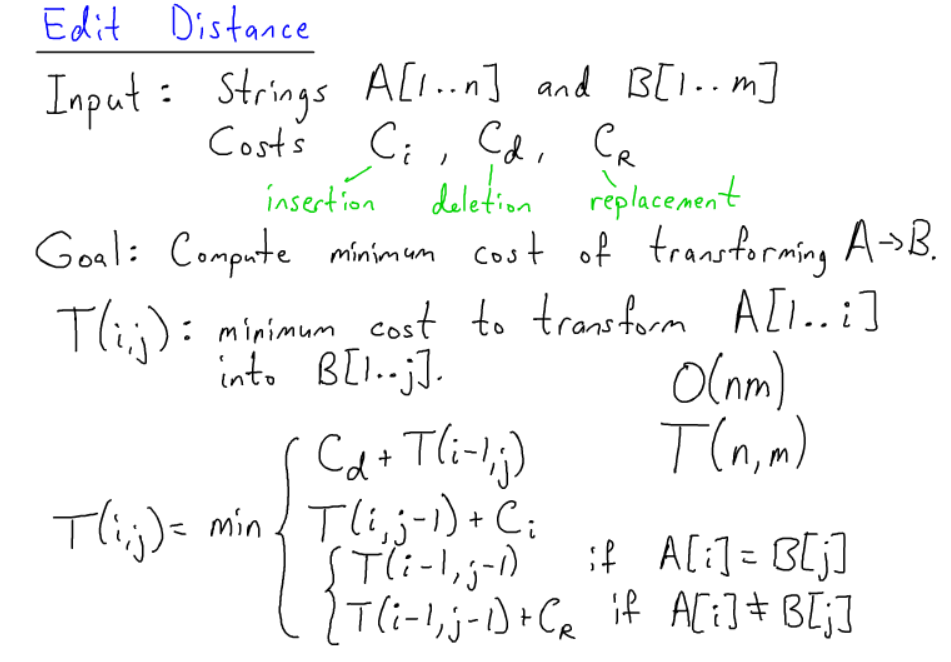 Edit Distance
Input: Strings A[1..n] and B[1..m]
Costs C_i, C_d, C_R
insertion deletion replacement
Goal: Compute minimum cost of transforming A→B.
T(i,j): minimum cost to transform A[1..i]
into B[1..j].
O(nm)
T(n,m)
C_d + T(i-1,j)
T(i,j) = min { T(i,j-1) + C_i
{ T(i-1,j-1) if A[i] = B[j]
T(i-1,j-1) + C_R if A[i] ≠ B[j]